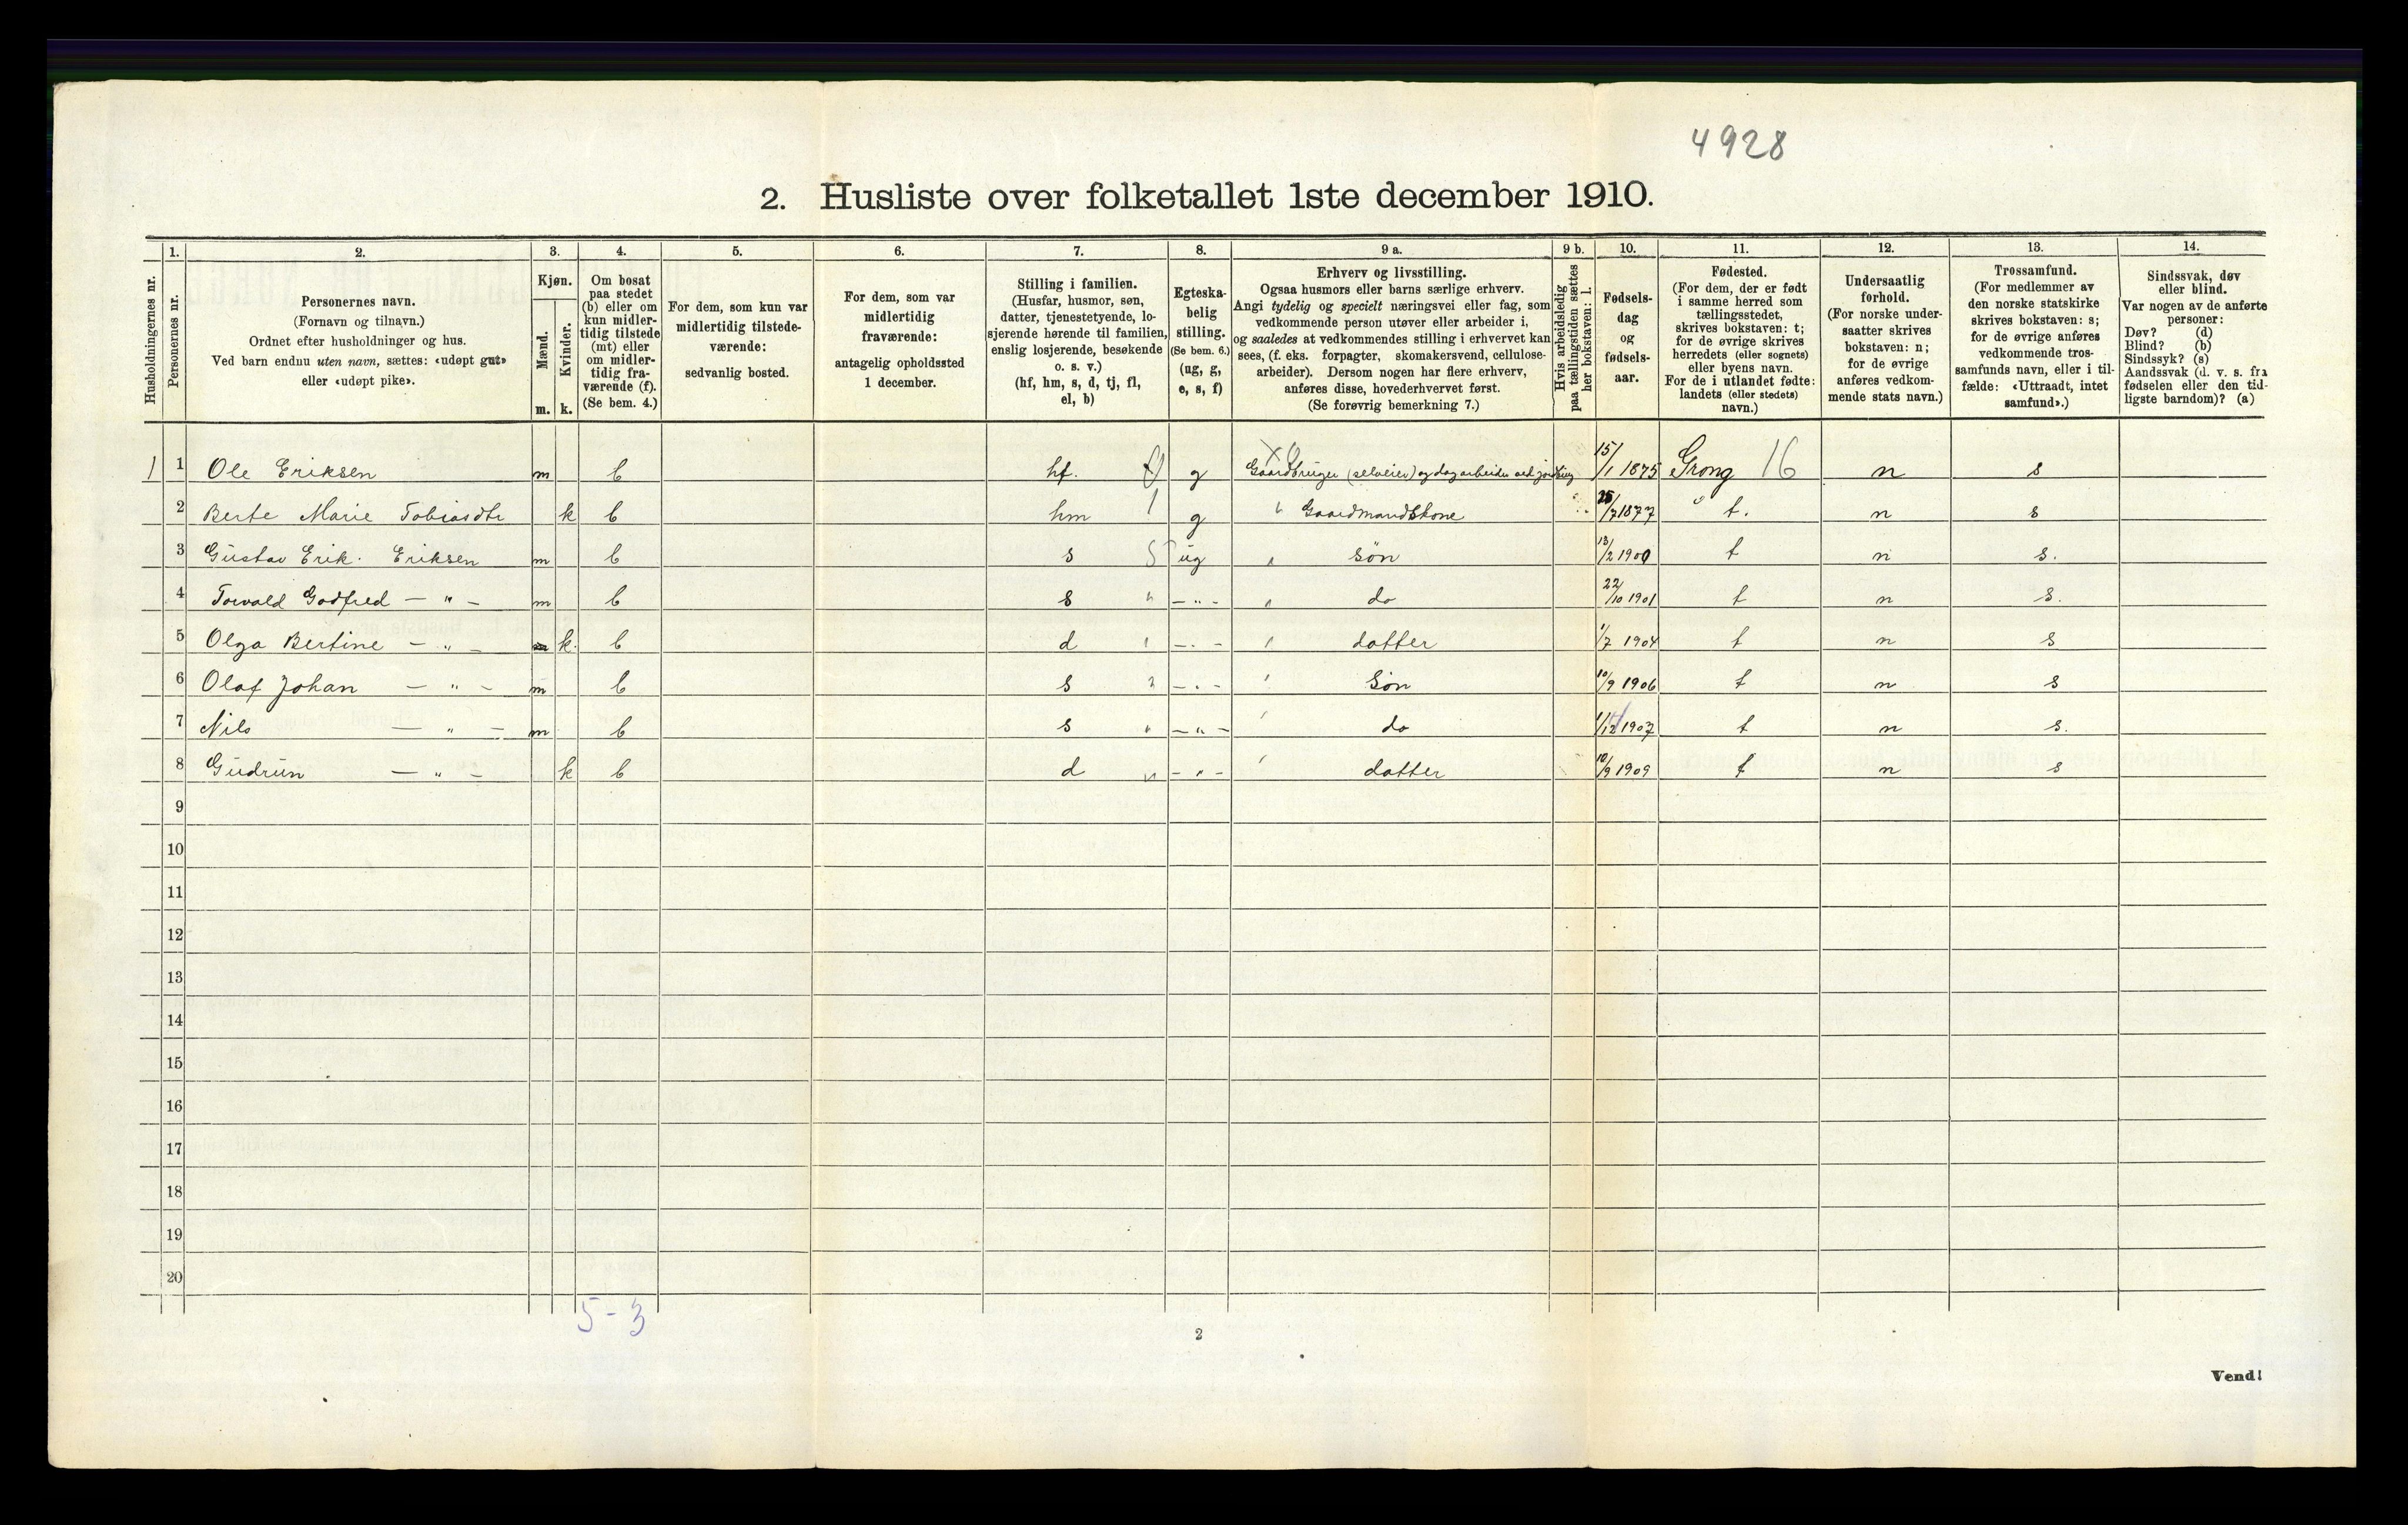 4928
2. Husliste over folketallet 1ste december 1910.
Husholdningernes nr.
1. Personernes nr.
2.
Personernes navn.
(Fornavn og tilnavn.)
Ordnet efter husholdninger og hus.
Ved barn endnu uten navn, sættes: «udøpt gut»
eller «udøpt pike».
3.
Kjøn.
Mænd. m.
Kvinder. k.
4.
Om bosat
paa stedet
(b) eller om
kun midler-
tidig tilstede
(mt) eller
om midler-
tidig fra-
værende (f).
(Se bem. 4.)
5.
For dem, som kun var
midlertidig tilstede-
værende:
sedvanlig bosted.
6.
For dem, som var
midlertidig
fraværende:
antagelig opholdssted
1 december.
7.
Stilling i familien.
(Husfar, husmor, søn,
datter, tjenestetyende, lo-
sjerende hørende til familien,
enslig losjerende, besøkende
o. s. v.)
(hf, hm, s, d, tj, fl,
el, b)
8.
Egteska-
belig
stilling.
(Se bem. 6.)
(ug, g,
e, s, f)
9 a.
Erhverv og livsstilling.
Ogsaa husmors eller barns særlige erhverv.
Angi tydelig og specielt næringsvei eller fag, som
vedkommende person utøver eller arbeider i,
og saaledes at vedkommendes stilling i erhvervet kan
sees, (f. eks. forpagter, skomakersvend, cellulose-
arbeider). Dersom nogen har flere erhverv,
anføres disse, hovederhvervet først.
(Se forøvrig bemerkning 7.)
9 b.
Hvis arbeidsledig
paa tællingstiden sættes
her bokstaven: l.
10.
Fødsels-
dag
og
fødsels-
aar.
11.
Fødested.
(For dem, der er født
i samme herred som
tællingsstedet,
skrives bokstaven: t;
for de øvrige skrives
herredets (eller sognets)
eller byens navn.
For de i utlandet fødte:
landets (eller stedets)
navn.)
12.
Undersaatlig
forhold.
(For norske under-
saatter skrives
bokstaven: n;
for de øvrige
anføres vedkom-
mende stats navn.)
13.
Trossamfund.
(For medlemmer av
den norske statskirke
skrives bokstaven: s;
for de øvrige anføres
vedkommende tros-
samfunds navn, eller i til-
fælde: «Uttraadt, intet
samfund».)
14.
Sindssvak, døv
eller blind.
Var nogen av de anførte
personer:
Døv? (d)
Blind? (b)
Sindssyk? (s)
Aandssvak (d. v. s. fra
fødselen eller den tid-
ligste barndom)? (a)
1 1 Ole Eriksen m b hf. g Gaardbruger (selveier) og dagarbeider ved 15/1 1875 Grong 16 n s
2 Berte Marie Tobiasdtr k b hm g Gaardmandskone /7 1877 t. n s
3 Gustav Erik. Eriksen m b s ug søn 13/2 1900 t n s.
4 Torvald Godfred — " — m b s — " — do 22/10 1901 t n s.
5 Olga Bertine — " — k. b d — " — datter 1/7 1904 t n s
6 Olaf Johan — " — m b s — " — Søn 10/9 1906 t n s
7 Nils — " — m b s — " — do 1/12 1907 t n s.
8 Gudrun — " — k b d — " — datter 10/9 1909 t n s
9
10
11
12
13
14
15
16
17
18
19
20
5-3
2
Vend!